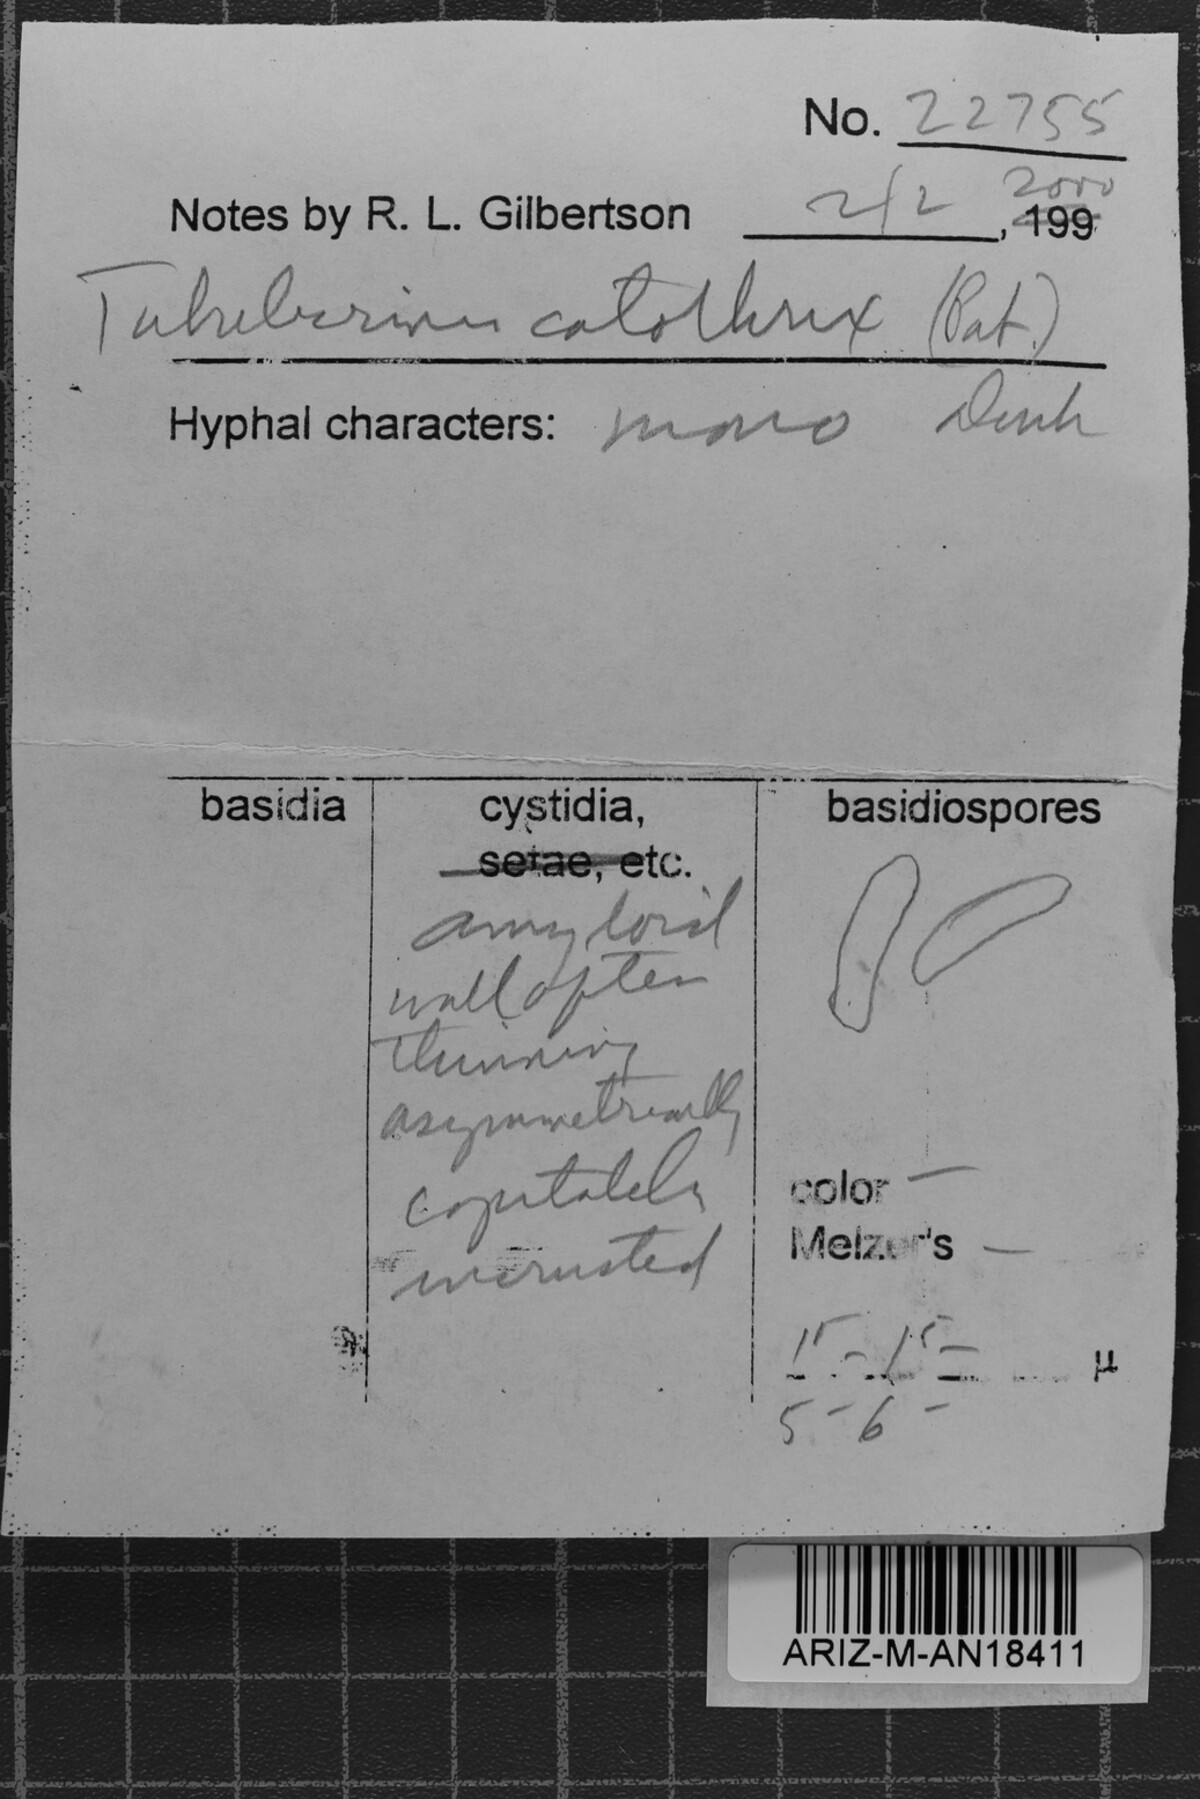 No. 22755
Notes by R. L. Gilbertson 2/2, 199 2000
Tubulicrinis calothrix (Pat.)
Donk
Hyphal characters: mono
basidia cystidia, basidiospores
setae, etc.
amyloid
wall often
thinning
asymmetrically
capitately
incrusted
color –
Melzer's –
15 – 15 – µ
5 – 6 –
ARIZ-M-AN18411